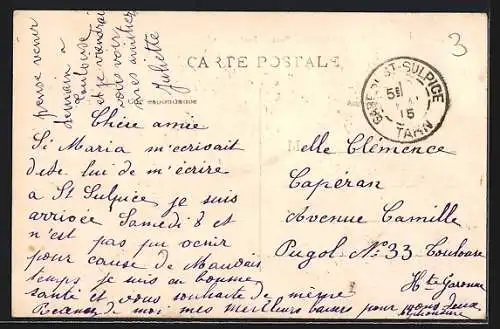 pense venir
demain a
Toulouse
et je viendrai
vous voir
mes amitiés
Juliette
3
CARTE POSTALE
Correspondance
GARE DE ST-SULPICE
5
15
TARN
Chère amie
Si Maria m'ecrivait
dite lui de m'écrire
a St Sulpice je suis
arrivée Samedi 8 et
n'est pas pu venir
pour cause de Mauvais
temps je suis en bonne
santé et vous souhaite de même
Recevez de moi mes meilleurs baisers pour vous deux
Melle Clémence
Capéran
Avenue Camille
Pujol No 33 Toulouse
Hte Garonne